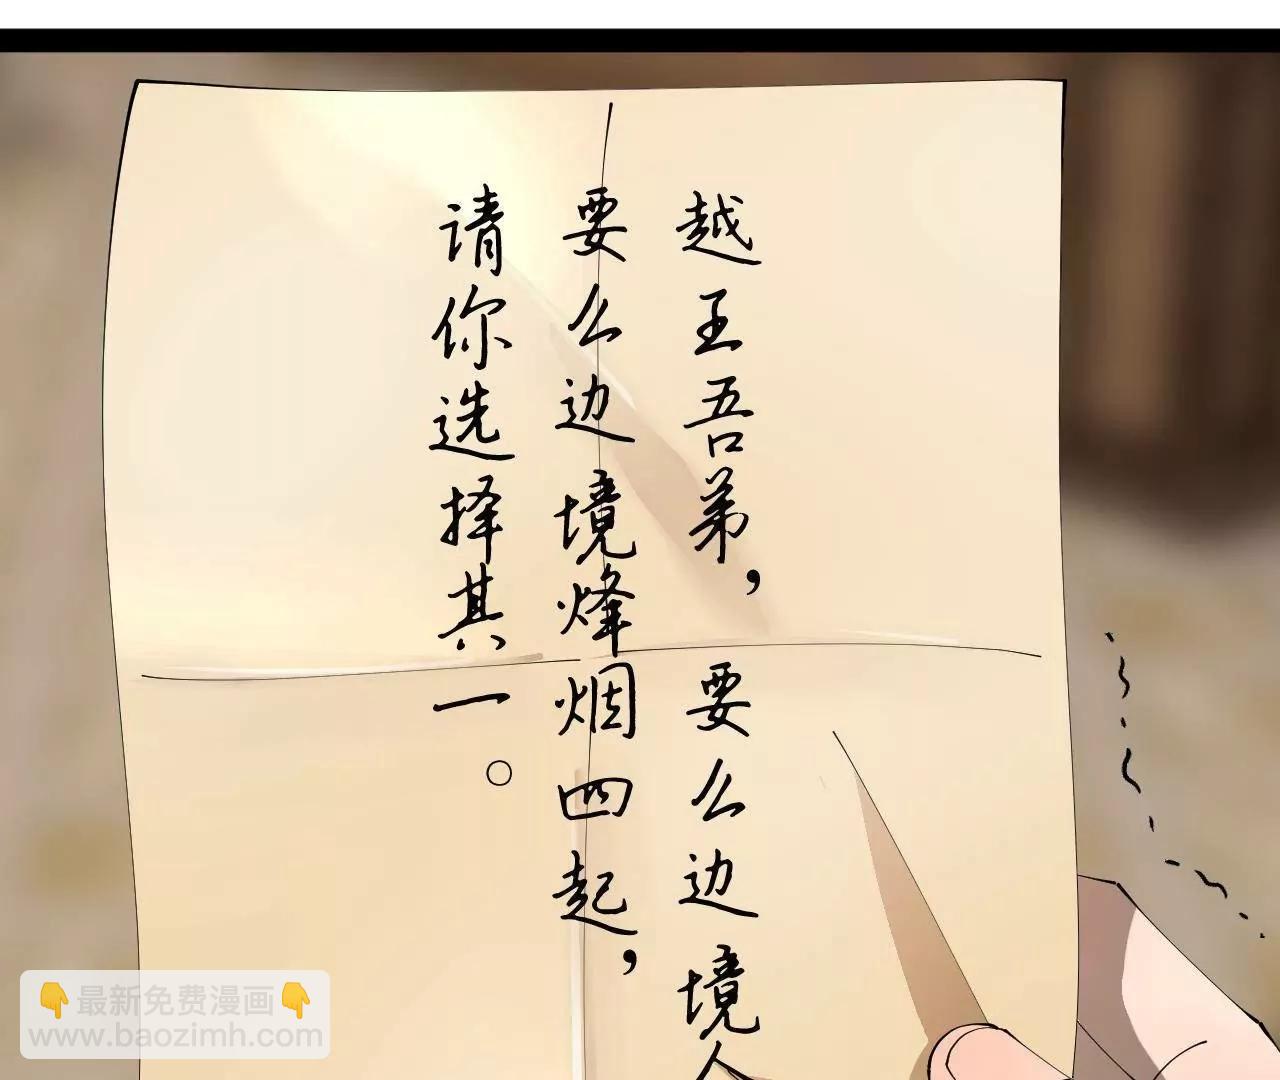 越王吾弟，要么边境人
要么边境烽烟四起，
请你选择其一。
最新免费漫画
www.baozimh.com